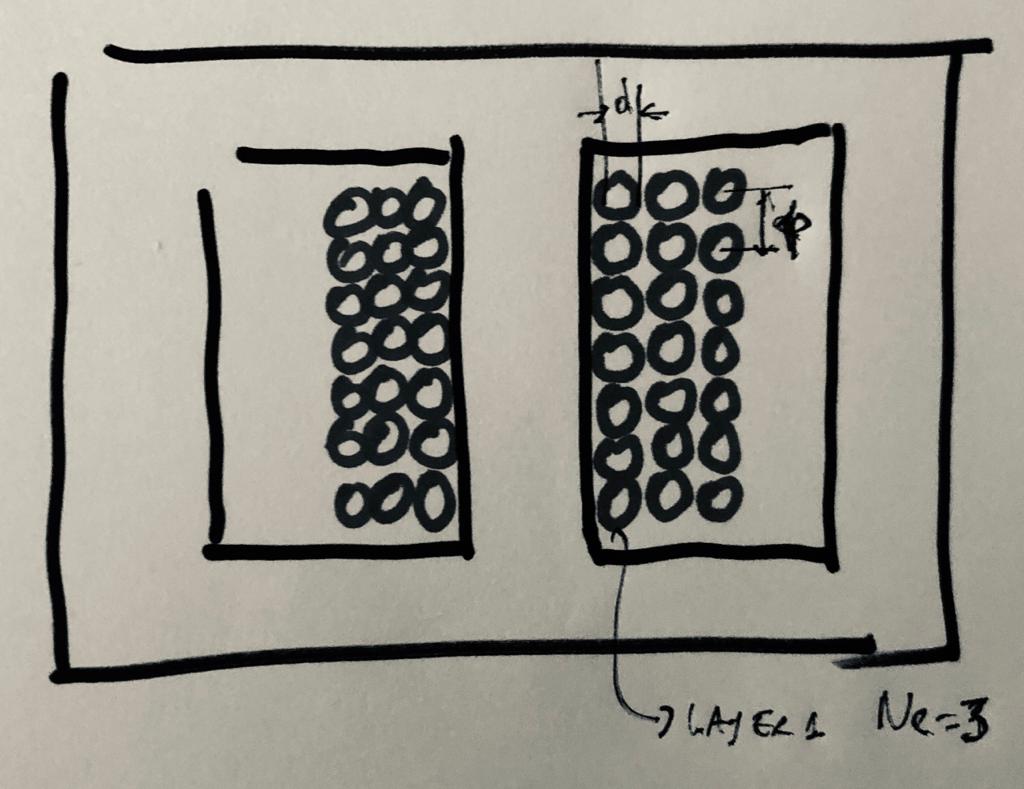 d
p
LAYER 1 Ne=3